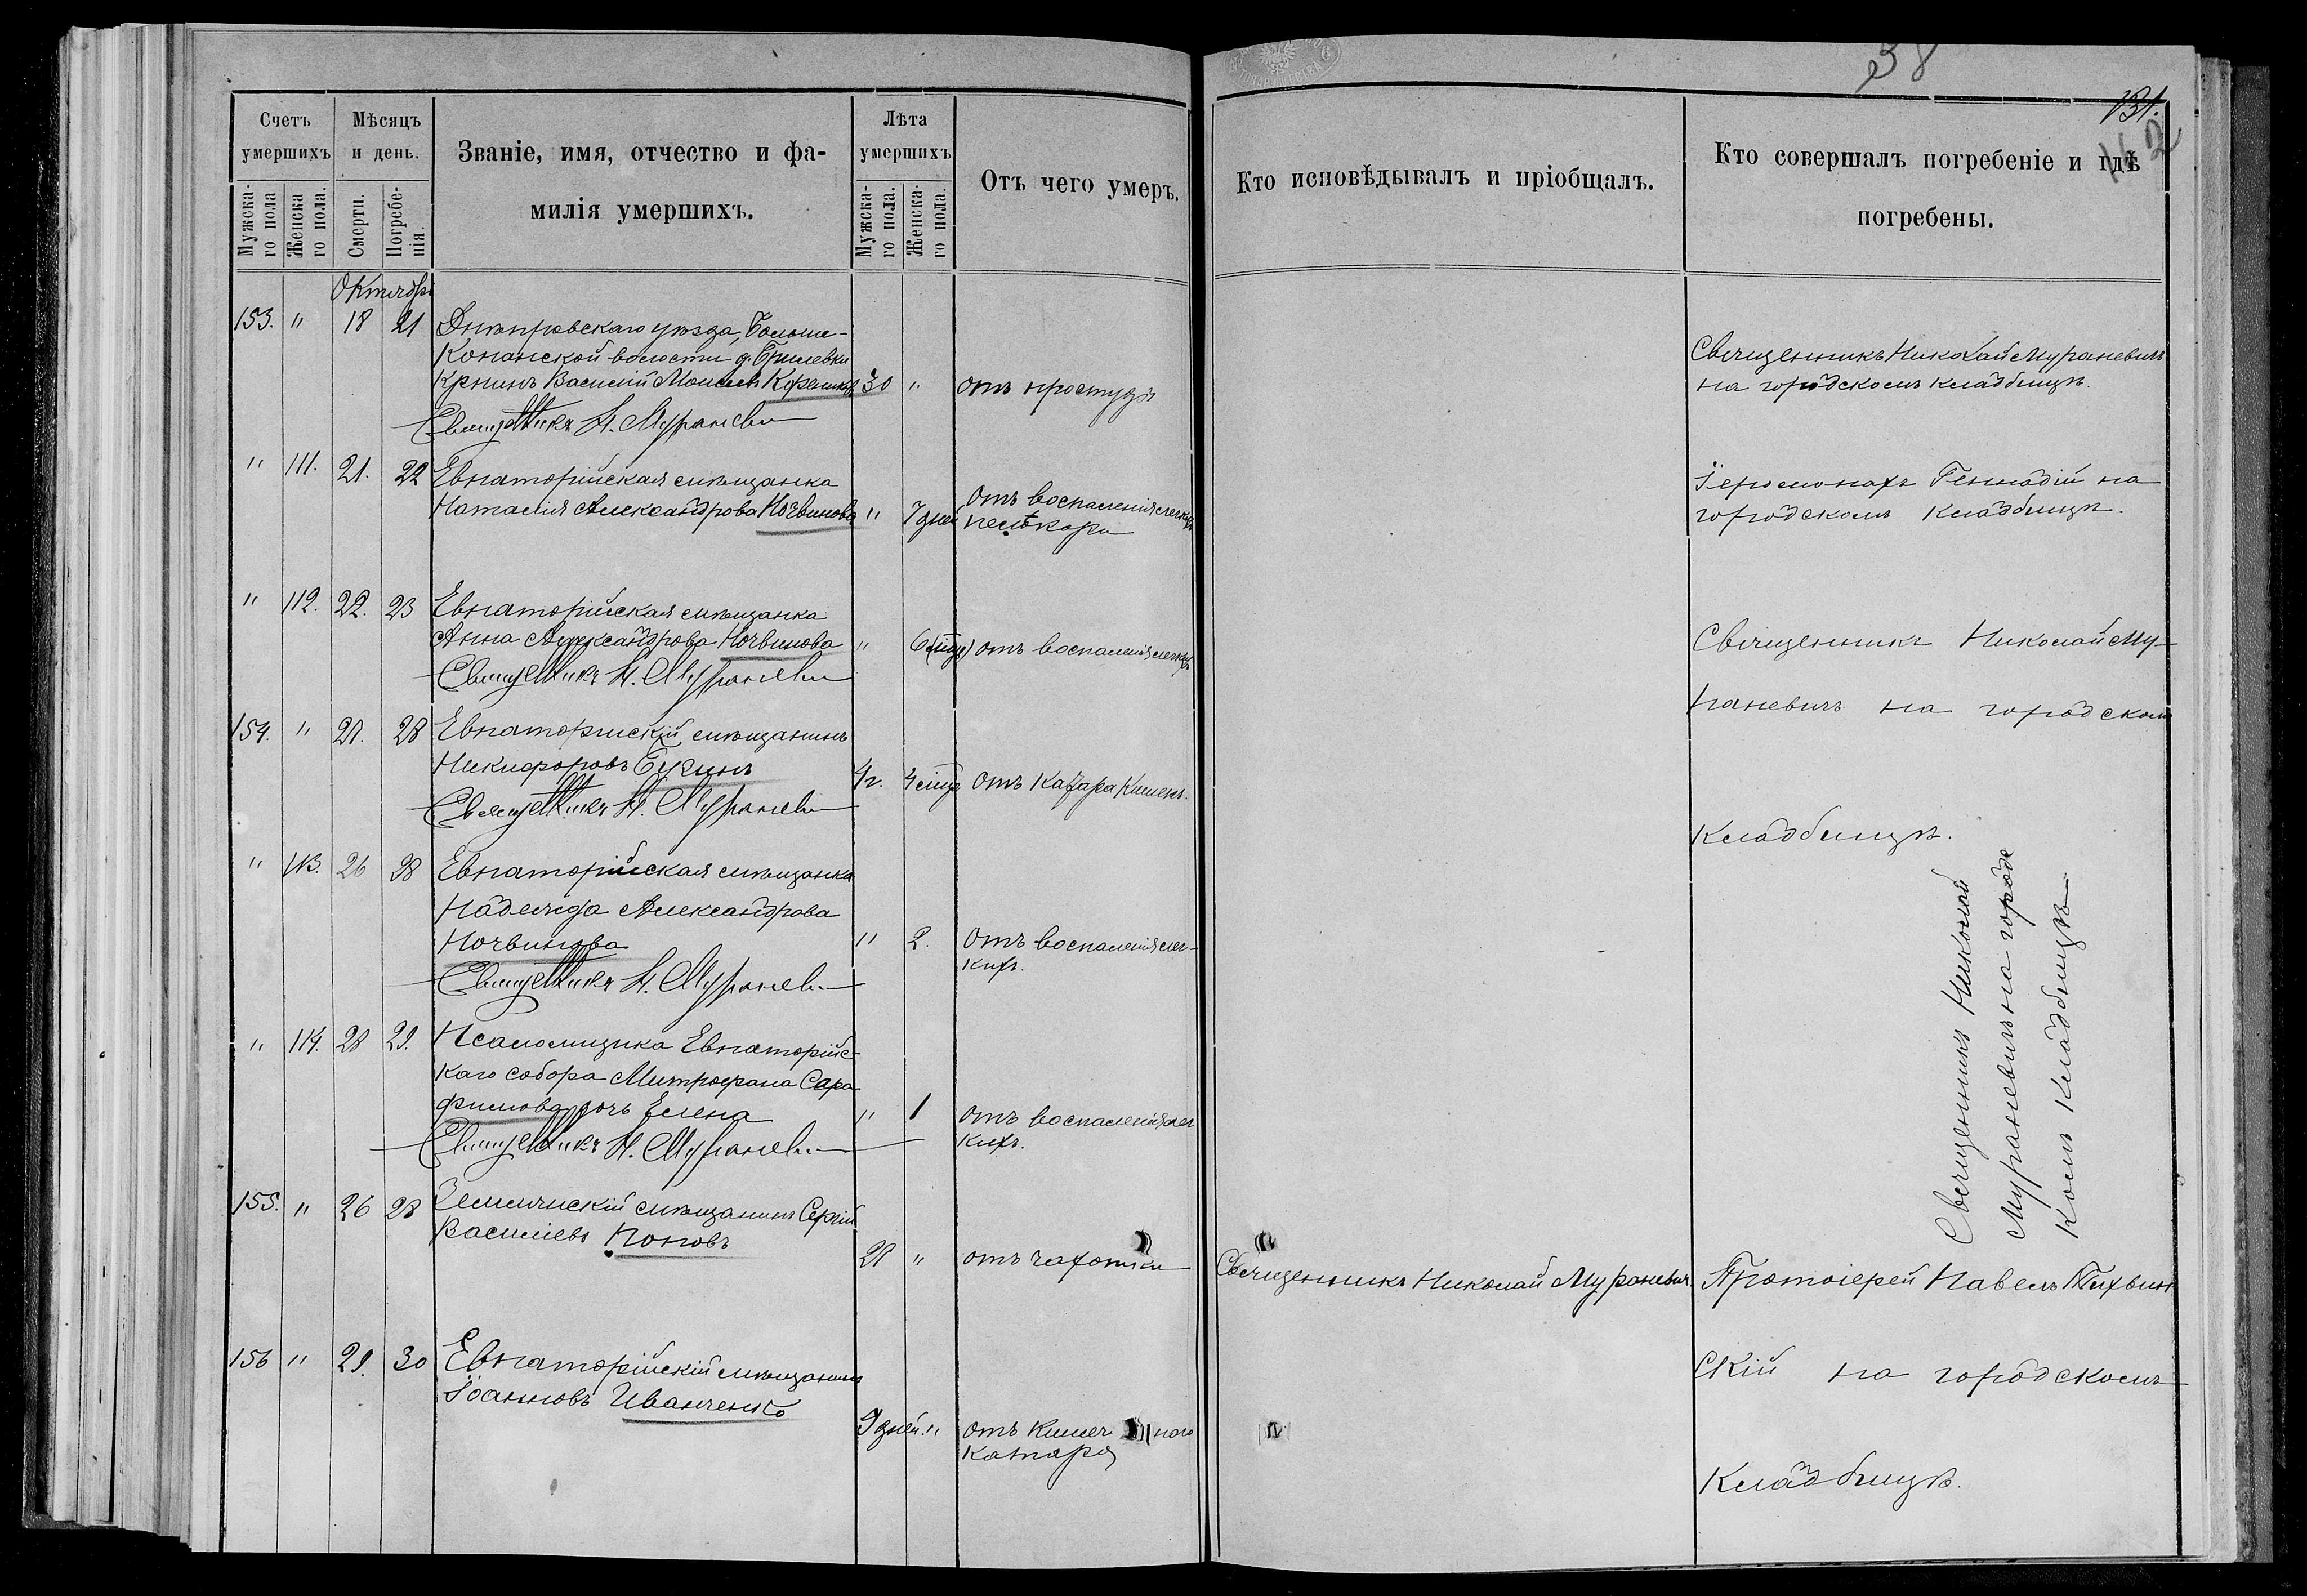 38
131.
Счетъ умершихъ
Мѣсяцъ и день.
Званіе, имя, отчество и фа-
милія умершихъ.
Лѣта умершихъ
Отъ чего умеръ.
Кто исповѣдывалъ и пріобщалъ.
Кто совершалъ погребеніе и гдѣ
погребены.
Мужска-
го пола
Женска
го пола.
Смерти.
Погребе-
нія.
Мужска-
го пола.
Женска-
го пола.
Октября
153. " 18 21 Днѣпровскаго уѣзда, Больше-
Копанской волости д. Брилевки
Крнинъ Василій Моисеевъ 30 " отъ простуды
Священникъ Н. Мураневич
Священникъ Николай Мураневичъ
на городскомъ кладбищѣ.
" 111. 21. 22 Евпаторійская мѣщанка
Наталія Александрова Ночвинова " 7 дней отъ воспаленія легкихъ
Іеромонахъ Геннадій на
городскомъ кладбищѣ.
" 112. 22. 23 Евпаторійская мѣщанка
Анна Александрова Ночвинова " 6 отъ воспаленія легкихъ
Священникъ Н. Мураневич
Священникъ Николай Му-
раневичъ на городскомъ
кладбищѣ.
154. " 21. 28 Евпаторискій мѣщанинъ
Никифоровъ 4 отъ Катара Кишекъ.
Священникъ Н. Мураневич
" 113. 26 28 Евпаторийская мѣщанка
Надежда Александрова
Ночвинова " 2. отъ воспаленія лег-
кихъ.
Священникъ Н. Мураневич
" 114. 28 29. Псаломщика Евпаторійс-
каго собора Митрофана Сера
фимова дочь Елена " 1 отъ воспаленія лег
кихъ.
Священникъ Н. Мураневич
Священникъ Николай
Мураневичъ на городс
комъ кладбищѣ
155. " 26 28 мѣщанинъ Сергій
Василіевъ Поповъ
21 " отъ чахотки
Священникъ Николай Мураневич
Протоіерей Павелъ Тихвин
скій на городскомъ
кладбищѣ.
156 " 29. 30 Евпаторійскій мѣщанинъ
Іоанновъ Иванченко
9 дней " отъ кишеч наго
катара